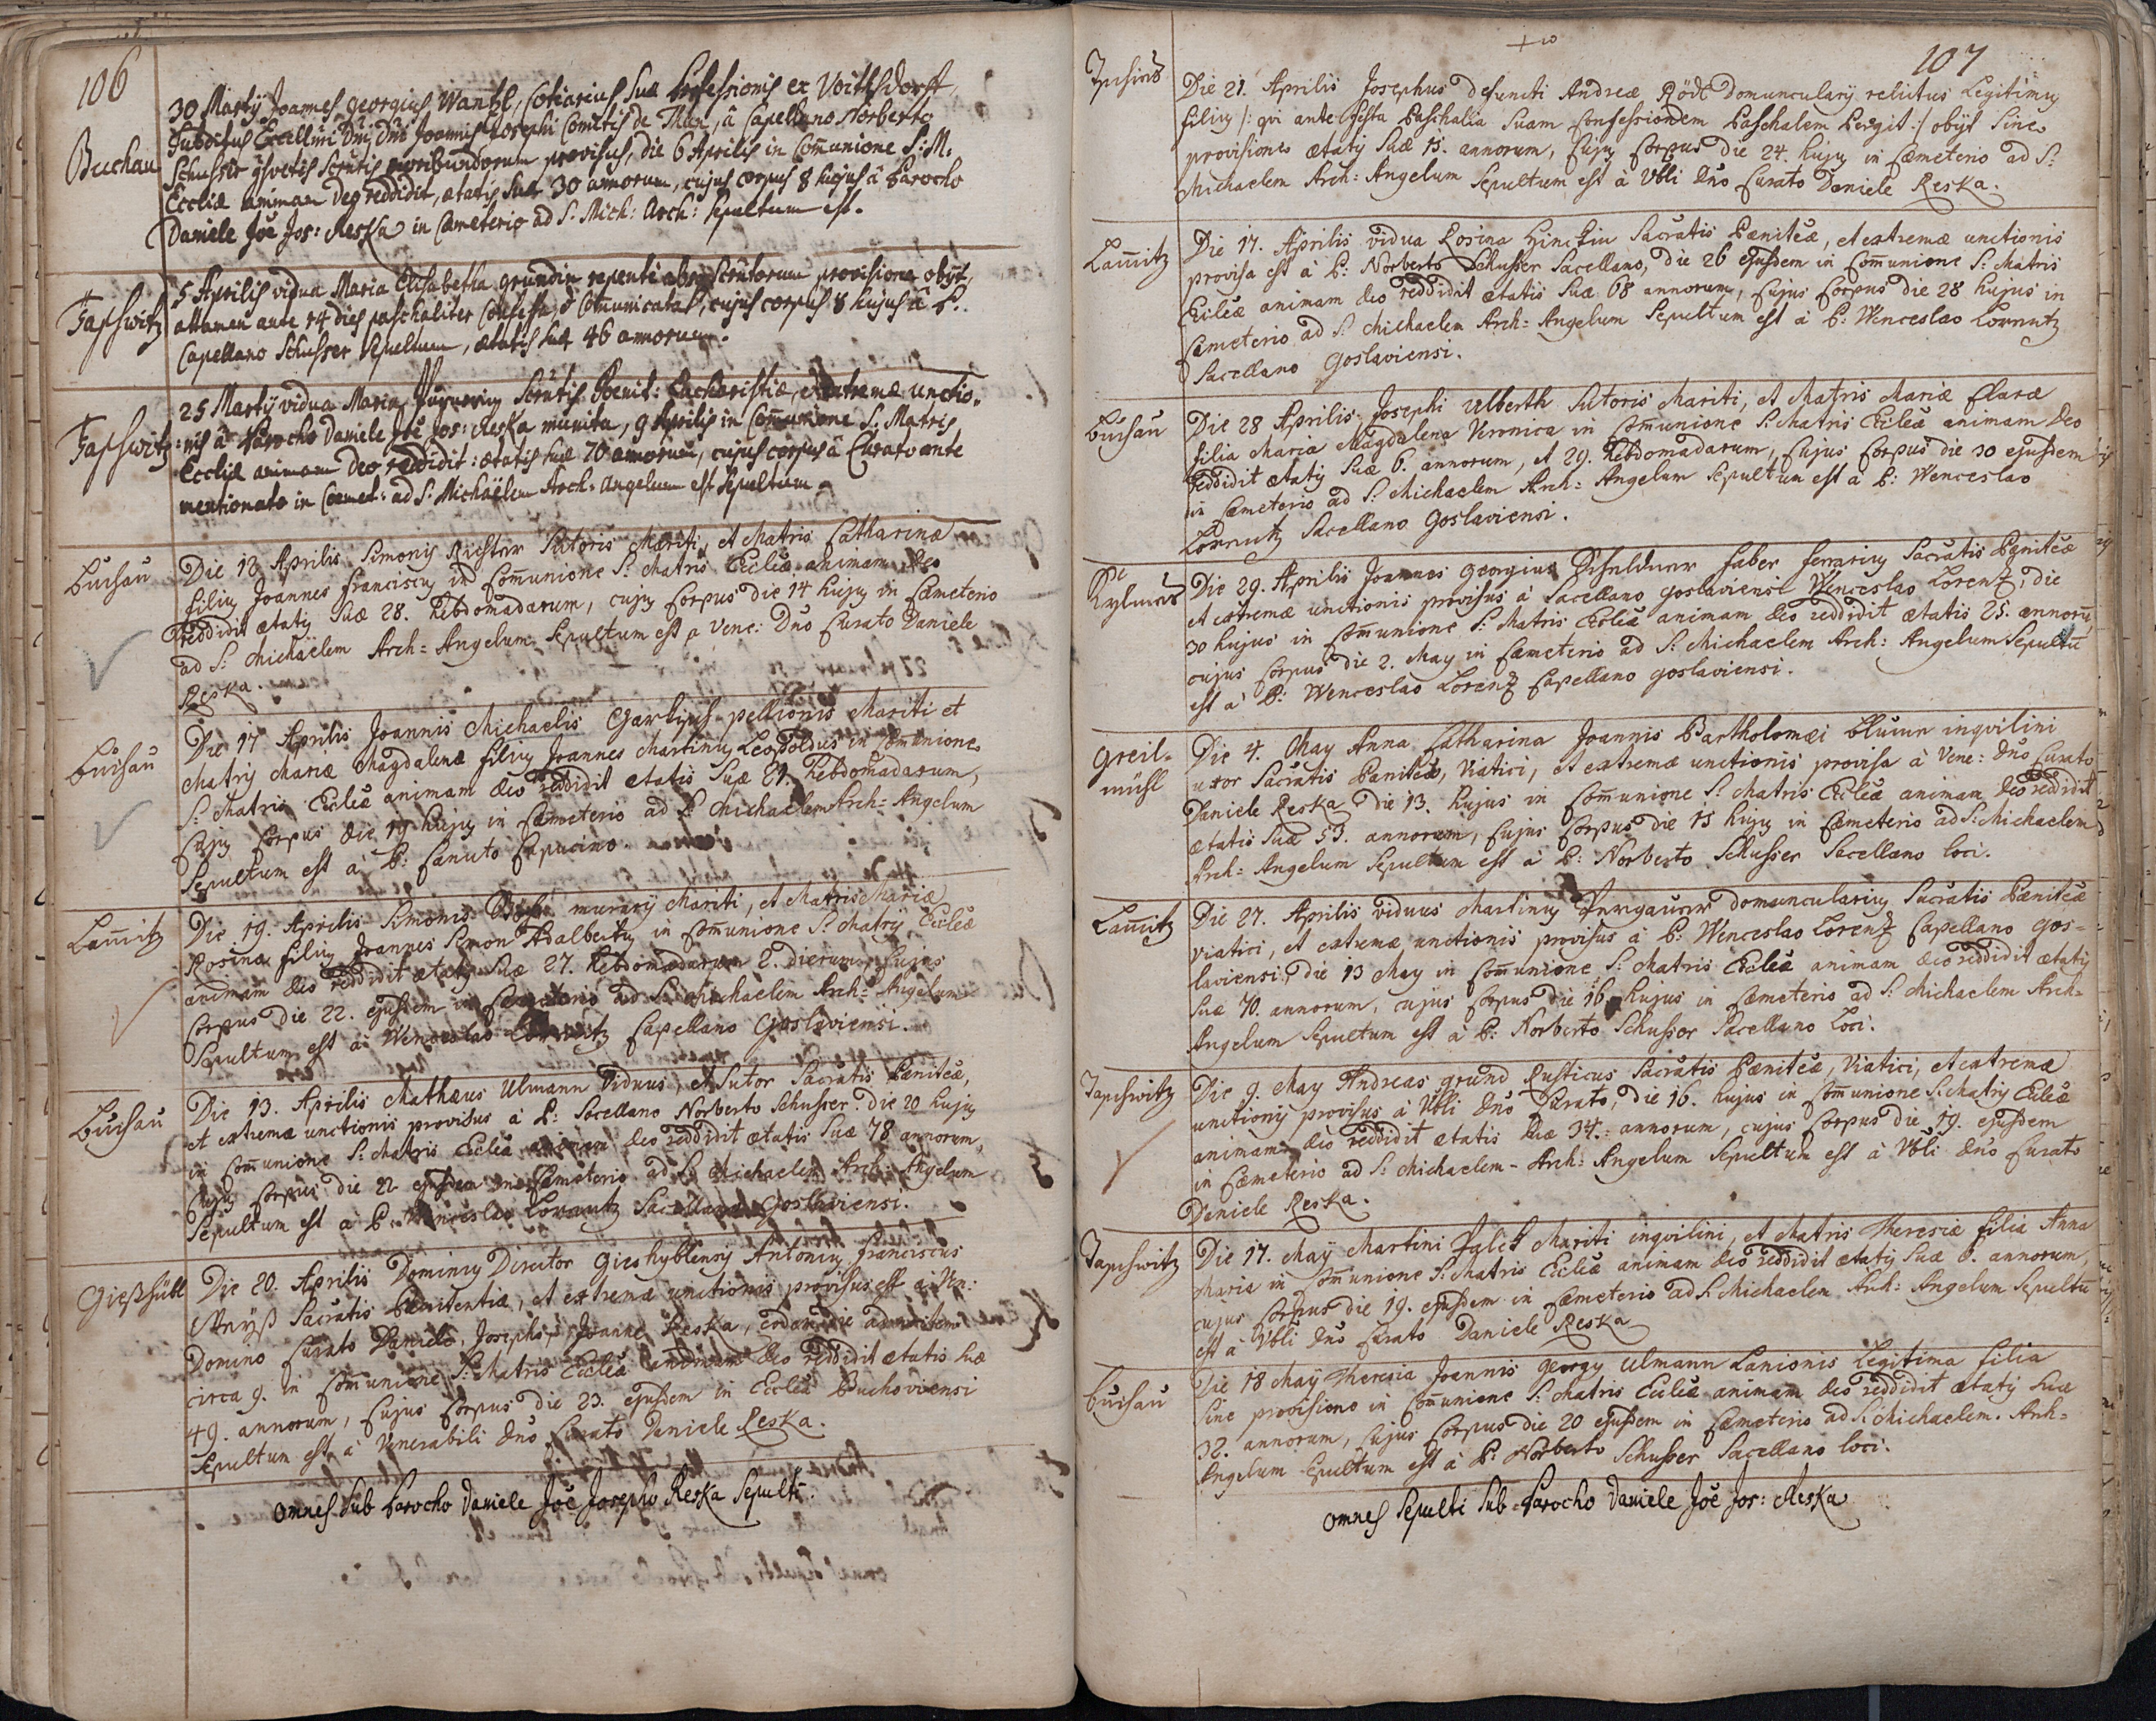 106
Buchau
30 Martÿ Joannes georgius Wantzl, Cotiarius suæ Professionis ex Voithsdorff
Subditus Excellmi Dni Dni Joannis Josephi Comitis de Thun, â Capellano Norberto
Schusser provisus, die 6 Aprilis in Com̄unione S: M:
Eccliæ animam Deo reddidit, ætatis suæ 30 annorum, cujus corpus 8 hujus â Parocho
Daniele Joë Jos: Reska in Cæmeterio ad S: Mich: Arch: sepultum est.
Tapschwitz
5 Aprilis vidua Maria Elisabetha grundin repentè absq provisione obÿt,
attamen ante 14 dies paschaliter Confessa, & Com̄unicata, cujus corpus 8 hujus â P.
Capellano Schusser sepultum, ætatis suæ 46 annorum.
Tapschwitz
25 Martÿ vidua Maria Pœnit: Eucharistiæ, extremæ unctio„
:nis â Parocho Daniele Joë Jos: Reska munita, 9 Aprilis in Com̄unione S: Matris
Eccliæ animam Deo reddidit: ætatis suæ 70 annorum, cujus corpus â Curato ante
mentionato in Cœmet: ad S: Michäelem Arch: Angelum est sepultum.
Buchau
Die 12 Aprilis Simonis Richter Sutoris Mariti, et Matris Catharinæ
filius Joannes Franciscus in Com̄unione S: Matris Eccleæ animam Deo
reddidit ætatis suæ 28. hebdomadarum, cujus corpus die 14 hujus in Cæmeterio
ad S: Michäelem Arch: Angelum sepultum est a Vene: Dno Curato Daniele
Reska.
Buchau
Die 17 Aprilis Joannis Michaelis pellionis Mariti et
Matris Mariæ Magdalenæ filius Joannes Martinus Leopoldus in Com̄unione
S: Matris Eccleæ animam deo reddidit ætatis suæ 21. hebdomadarum,
cujus corpus die 19 hujus in Cæmeterio ad S: Michaelem Arch: Angelum
Sepultum est à P: Canuto Capucino.
Lam̄itz
Die 19. Aprilis Simonis murarÿ Mariti, et Matris Mariæ
Rosinæ filius Joannes Simon Adalbertus in Com̄unione S: Matris Eccleæ
animam deo reddidit ætatis suæ 27. hebdomadarum 2. dierum, cujus
corpus die 22. ejusdem in Cæmeterio ad S: Michaelem Arch: Angelum
Sepultum est à Wenceslao Lorentz Capellano Goslaviensi.
Buchau
Die 13. Aprilis Mathæus Ulmann Viduus, et Sutor Sacratis Pœniteæ,
et extremæ unctionis provisus à P: Sacellano Norberto Schusser. die 20 hujus
in Com̄unione S: Matris Eccleæ animam deo reddidit ætatis suæ 78 annorum,
cujus corpus die 22 ejusdem in Cæmeterio ad S: Michaelem Arch: Angelum
Sepultum est à P: Wenceslao Lorentz Sacellano Goslaviensi.
Gießhübl
Die 20. Aprilis Dominus Director Gieshyblensis Antonius Franciscus
Sacratis Pœnitentiæ, et extremæ unctionis provisus est à Ven:
Domino Curato Daniele, Josepho, Joanne Reska, eodem die
circa 9. in Com̄unione S: Matris Eccleæ animam deo reddidit ætatis suæ
49. annorum, cujus corpus die 23. ejusdem in Ecclea Buchoviensi
Sepultum est à Venerabili dno Curato Daniele Reska.
omnes sub Parocho Daniele Joë Josepho Reska sepulti.
107
Die 21. Aprilis Josephus defuncti Andreæ Rödl domuncularÿ relictus legitimus
filius /: qvi ante festa Paschalia suam Confessionem Paschalem Peregit :/ obÿt sine
provisione ætatis suæ 15. annorum, cujus corpus die 24. hujus in Cæmeterio ad S:
Michaelem Arch: Angelum Sepultum est à Vbli dno Curato Daniele Reska.
Lam̄itz
Die 17. Aprilis vidua Rosina Sacratis Pœniteæ, et extremæ unctionis
provisa est à P: Norberto Schusser Sacellano, die 26 ejusdem in Com̄unione S: Matris
Eccleæ animam deo reddidit ætatis suæ 68 annorum, cujus corpus die 28 hujus in
Cæmeterio ad S: Michaelem Arch: Angelum Sepultum est à P: Wenceslao Lorentz
Sacellano Goslaviensi.
Buchau
Die 28 Aprilis Josephi Ulberth Sutoris Mariti, et Matris Mariæ Claræ
filia Maria Magdalena Veronica in Com̄unione S: Matris Eccleæ animam deo
reddidit ætatis suæ 6. annorum, et 29. hebdomadarum, cujus corpus die 30 ejusdem
in Cæmeterio ad S: Michaelem Arch: Angelum Sepultum est à P: Wenceslao
Lorentz Sacellano Goslaviensi.
Die 29. Aprilis Joannes Georgius faber ferrarius Sacratis Pœniteæ
et extremæ unctionis provisus à Sacellano goslaviensi Wenceslao Lorentz, die
30 hujus in Com̄unione S: Matris Eccleæ animam deo reddidit ætatis 25. annorū,
cujus corpus die 2. May in Cæmeterio ad S: Michaelem Arch: Angelum Sepultū
est à P: Wenceslao Lorentz Capellano goslaviensi.
Greil-
mühl
Die 4. May Anna Catharina Joannis Bartholomæi inqvilini
uxor Sacratis Pœniteæ, Viatici, et extremæ unctionis provisa à Vene: dno Curato
Daniele Reska die 13. hujus in Com̄unione S: Matris Eccleæ animam deo reddidit
ætatis suæ 53. annorum, cujus corpus die 15 hujus in Cæmeterio ad S: Michaelem
Arch: Angelum Sepultum est à P: Norberto Schusser Sacellano loci.
Lam̄itz
Die 27. Aprilis viduus Martinus domuncularius Sacratis Pœniteæ
viatici, et extremæ unctionis provisus à P: Wenceslao Lorentz Capellano gos=
laviensi, die 13 May in Com̄unione S: Matris Eccleæ animam deo reddidit ætatis
suæ 70. annorum, cujus corpus die 16 hujus in Cæmeterio ad S: Michaelem Arch=
Angelum Sepultum est à P: Norberto Schusser Sacellano Loci.
Tapschwitz
Die 9. May Andreas grund Rusticus Sacratis Pœniteæ, Viatici, et extremæ
unctionis provisus à Vbli dno Curato, die 16. hujus in Com̄unione S: Matris Eccleæ
animam deo reddidit ætatis suæ 34. annorum, cujus corpus die 19. ejusdem
in Cæmeterio ad S: Michaelem Arch: Angelum Sepultum est à Vbli dno Curato
Daniele Reska.
Tapschwitz
Die 17. Maÿ Martini Mariti inqvilini, et Matris Theresiæ filia Anna
Maria in Com̄unione S: Matris Eccleæ animam deo reddidit ætatis suæ annorum,
cujus corpus die 19. ejusdem in Cæmeterio ad S: Michaelem Arch: Angelum Sepultū
est à Vbli dno Curato Daniele Reska
Buchau
Die 18 Maÿ Theresia Joannis georgÿ Ulmann Lanionis legitima filia
Sine provisione in Com̄unione S: Matris Eccleæ animam deo reddidit ætatis suæ
32. annorum, cujus corpus die 20 ejusdem in Cæmeterio ad S: Michaelem. Arch=
Angelum Sepultum est à P: Norberto Schusser Sacellano loci.
omnes sepulti sub Parocho Daniele Joë Jos: Reska